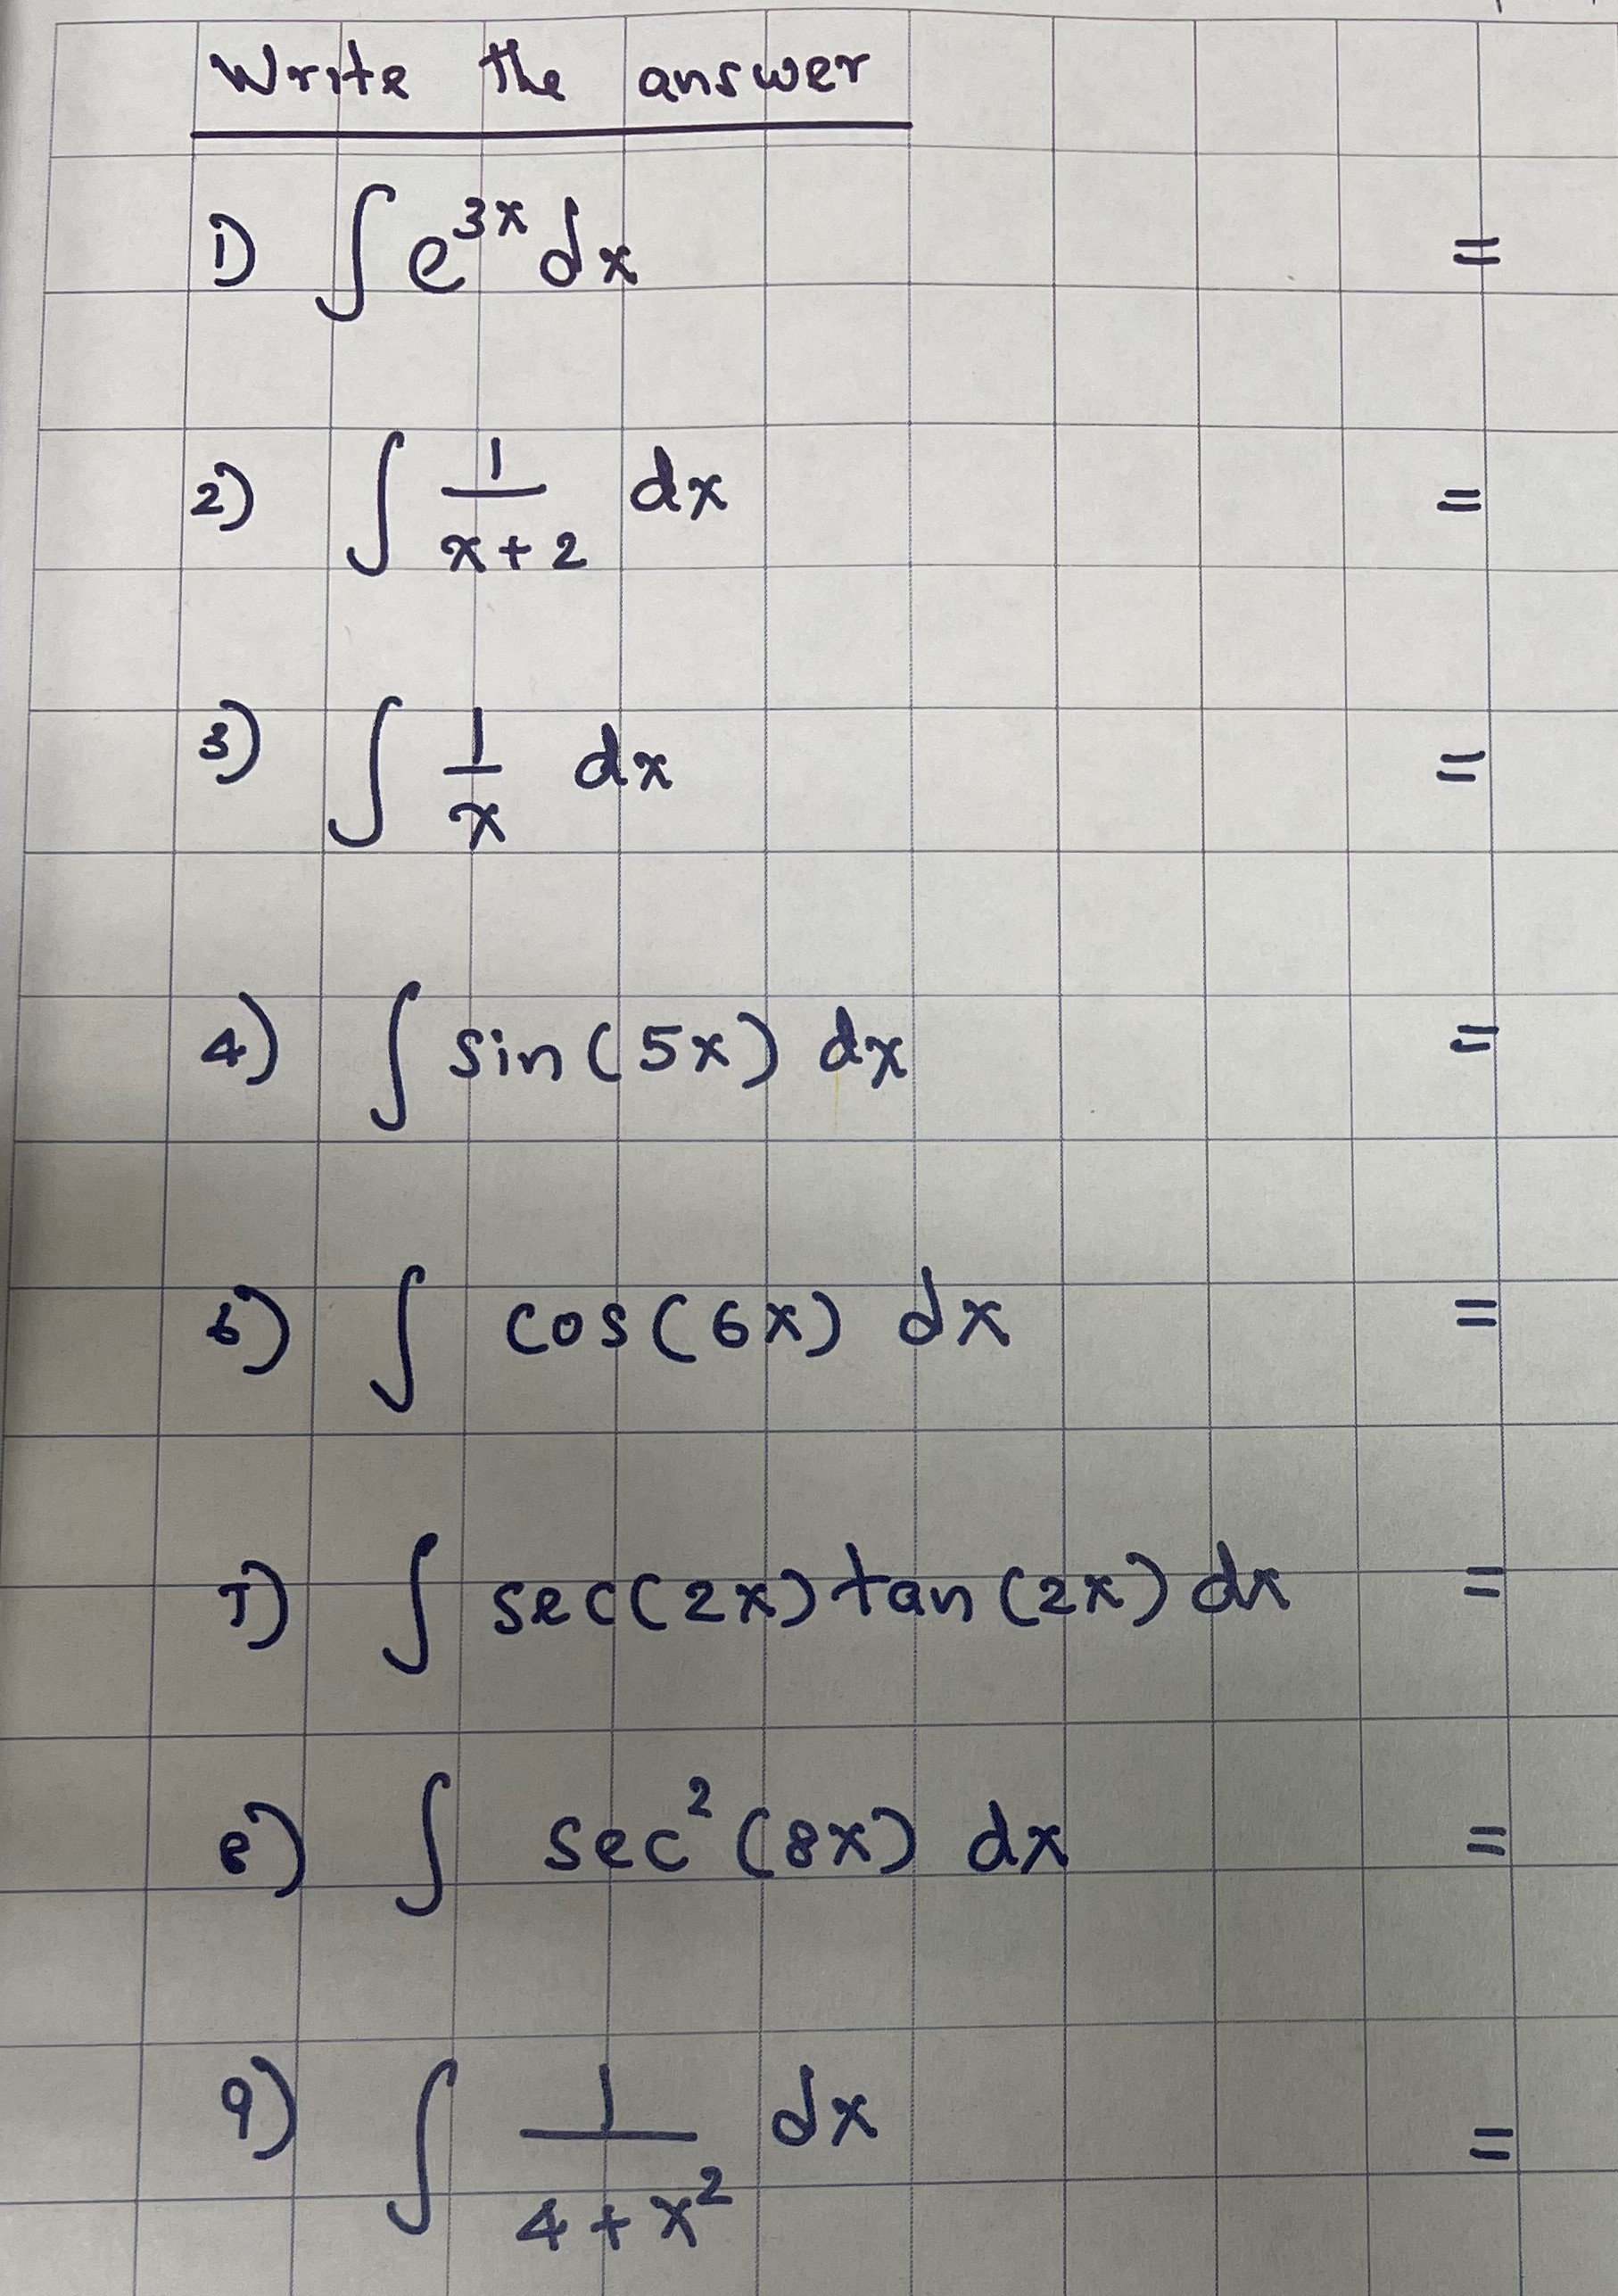 Write the answer
1) ∫ e^{3x} dx =
2) ∫ \frac{1}{x+2} dx =
3) ∫ \frac{1}{x} dx =
4) ∫ sin(5x) dx =
6) ∫ cos(6x) dx =
7) ∫ sec(2x) tan(2x) dx =
8) ∫ sec²(8x) dx =
9) ∫ \frac{1}{4+x²} dx =